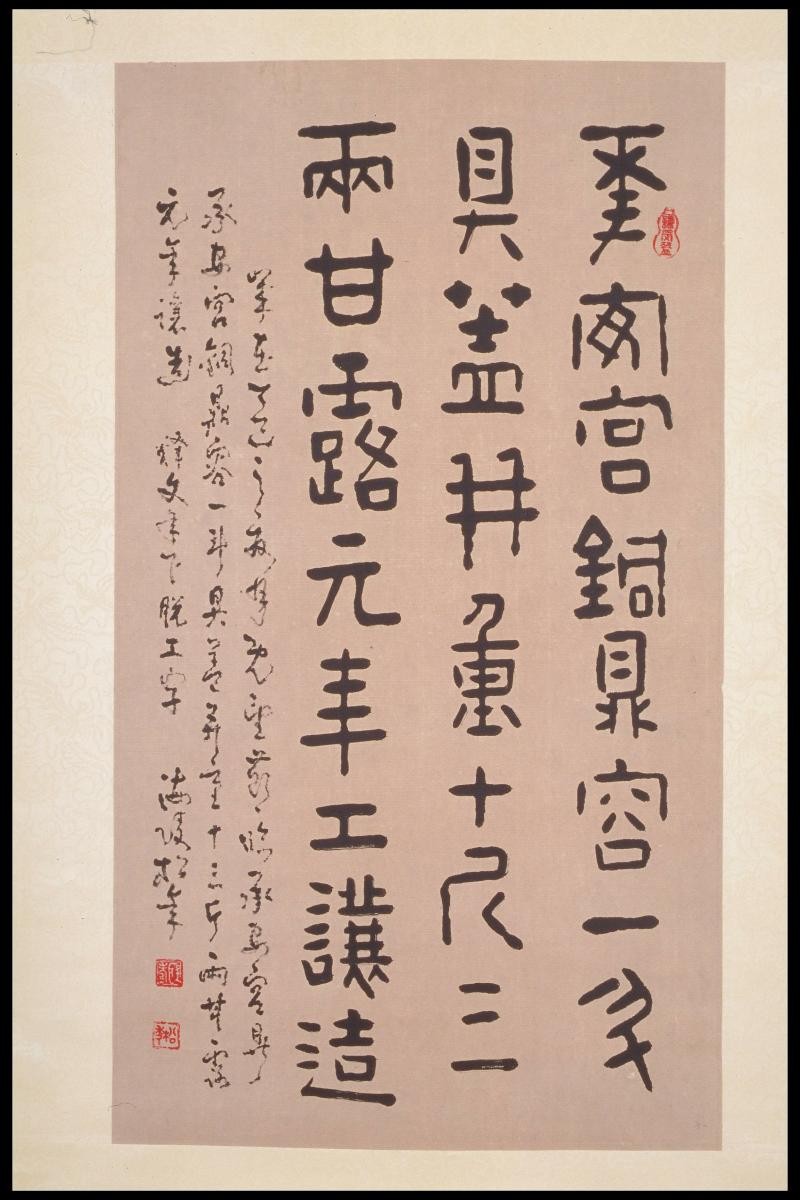 承安宮銅鼎容一斗
具蓋并重十斤三
兩甘露元年工讓造
之臨承安宮鼎
承安宮銅鼎容一斗具蓋并重十三斤兩甘露
元年讓造 釋文年下脫工字 海陵松年
松年